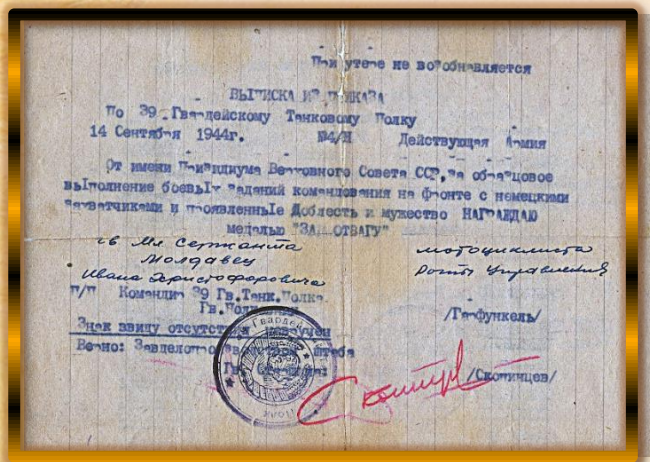 При утере не возобновляется
ВЫПИСКА ИЗ ПРИКАЗА
По 39 Гвардейскому Танковому Полку
14 Сентября 1944г. №4/Н Действующая Армия
От имени Президиума Верховного Совета ССР, за образцовое
выполнение боевых заданий командования на фронте с немецкими
захватчиками и проявленные Доблесть и мужество НАГРАЖДАЮ
медалью "ЗА ОТВАГУ"
гв Мл Сержанта мотоциклиста
Молдавец роты управления
Ивана Христофоровича
П/П Командир 39 Гв.Танк.Полка.
Гв. /Гарфункель/
Знак ввиду отсутствия невручен
Верно: штаба
Гв. /Скопинцев/
Гвардей